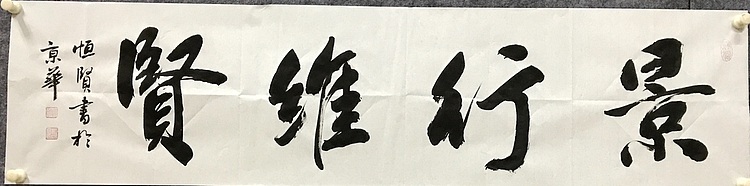 景行維賢
恒賢書於
京華